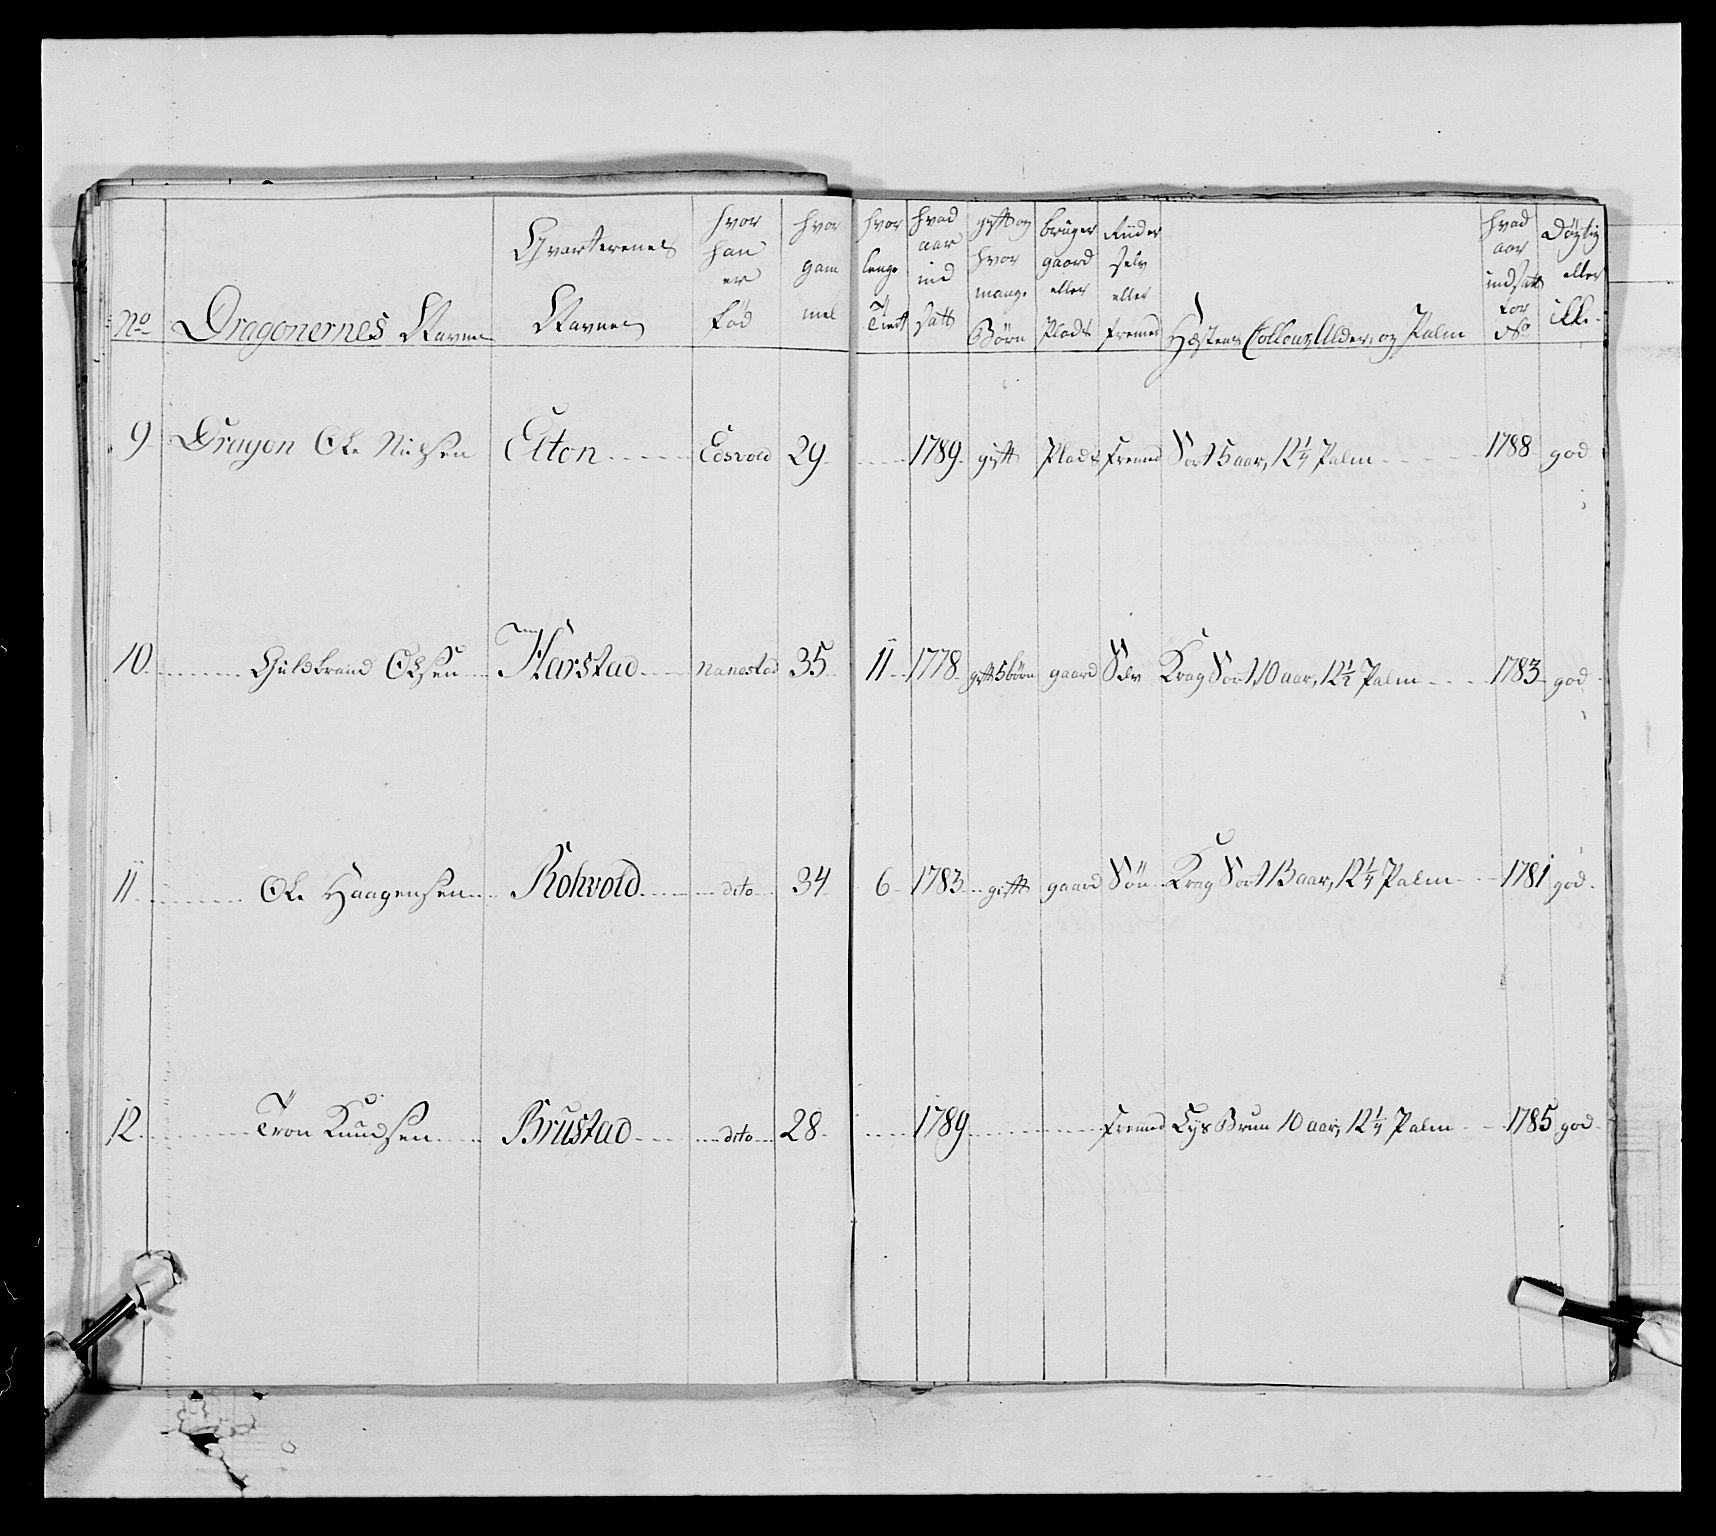 No
Dragonernes Navne
Qvarterenes Navne
hvor han er fød
hvor gam mel
hvor lenge Tient
hvad aar ind satt
gift og hvor mange Børn
brüger gaard eller Plads
Riider selv eller fremed
Hæstens Collour, Alder, og Palm
hvad aar indsatt for No
Dÿgtig eller ikke
9 Dragon Ole Nielsen Elton Edsvold 29 1789 gift Plads fremed Sort 5 aar, 12 1/4 Palm 1788 god
10 Guldbrand Olsen Harstad Nanestad 35 11 1778 gift 5 børn gaard Selv Krag Sort, 10 aar, 12 1/2 Palm 1783 god
11 Ole Haagensen Rohvold dito 34 6 1783 gift gaard Søn Krag Sort 13 aar, 12 1/4 Palm 1781 god
12 Tron Knudsen Brustad dito 28 1789 fremed Lys Brun 10 aar, 12 1/4 Palm 1785 god